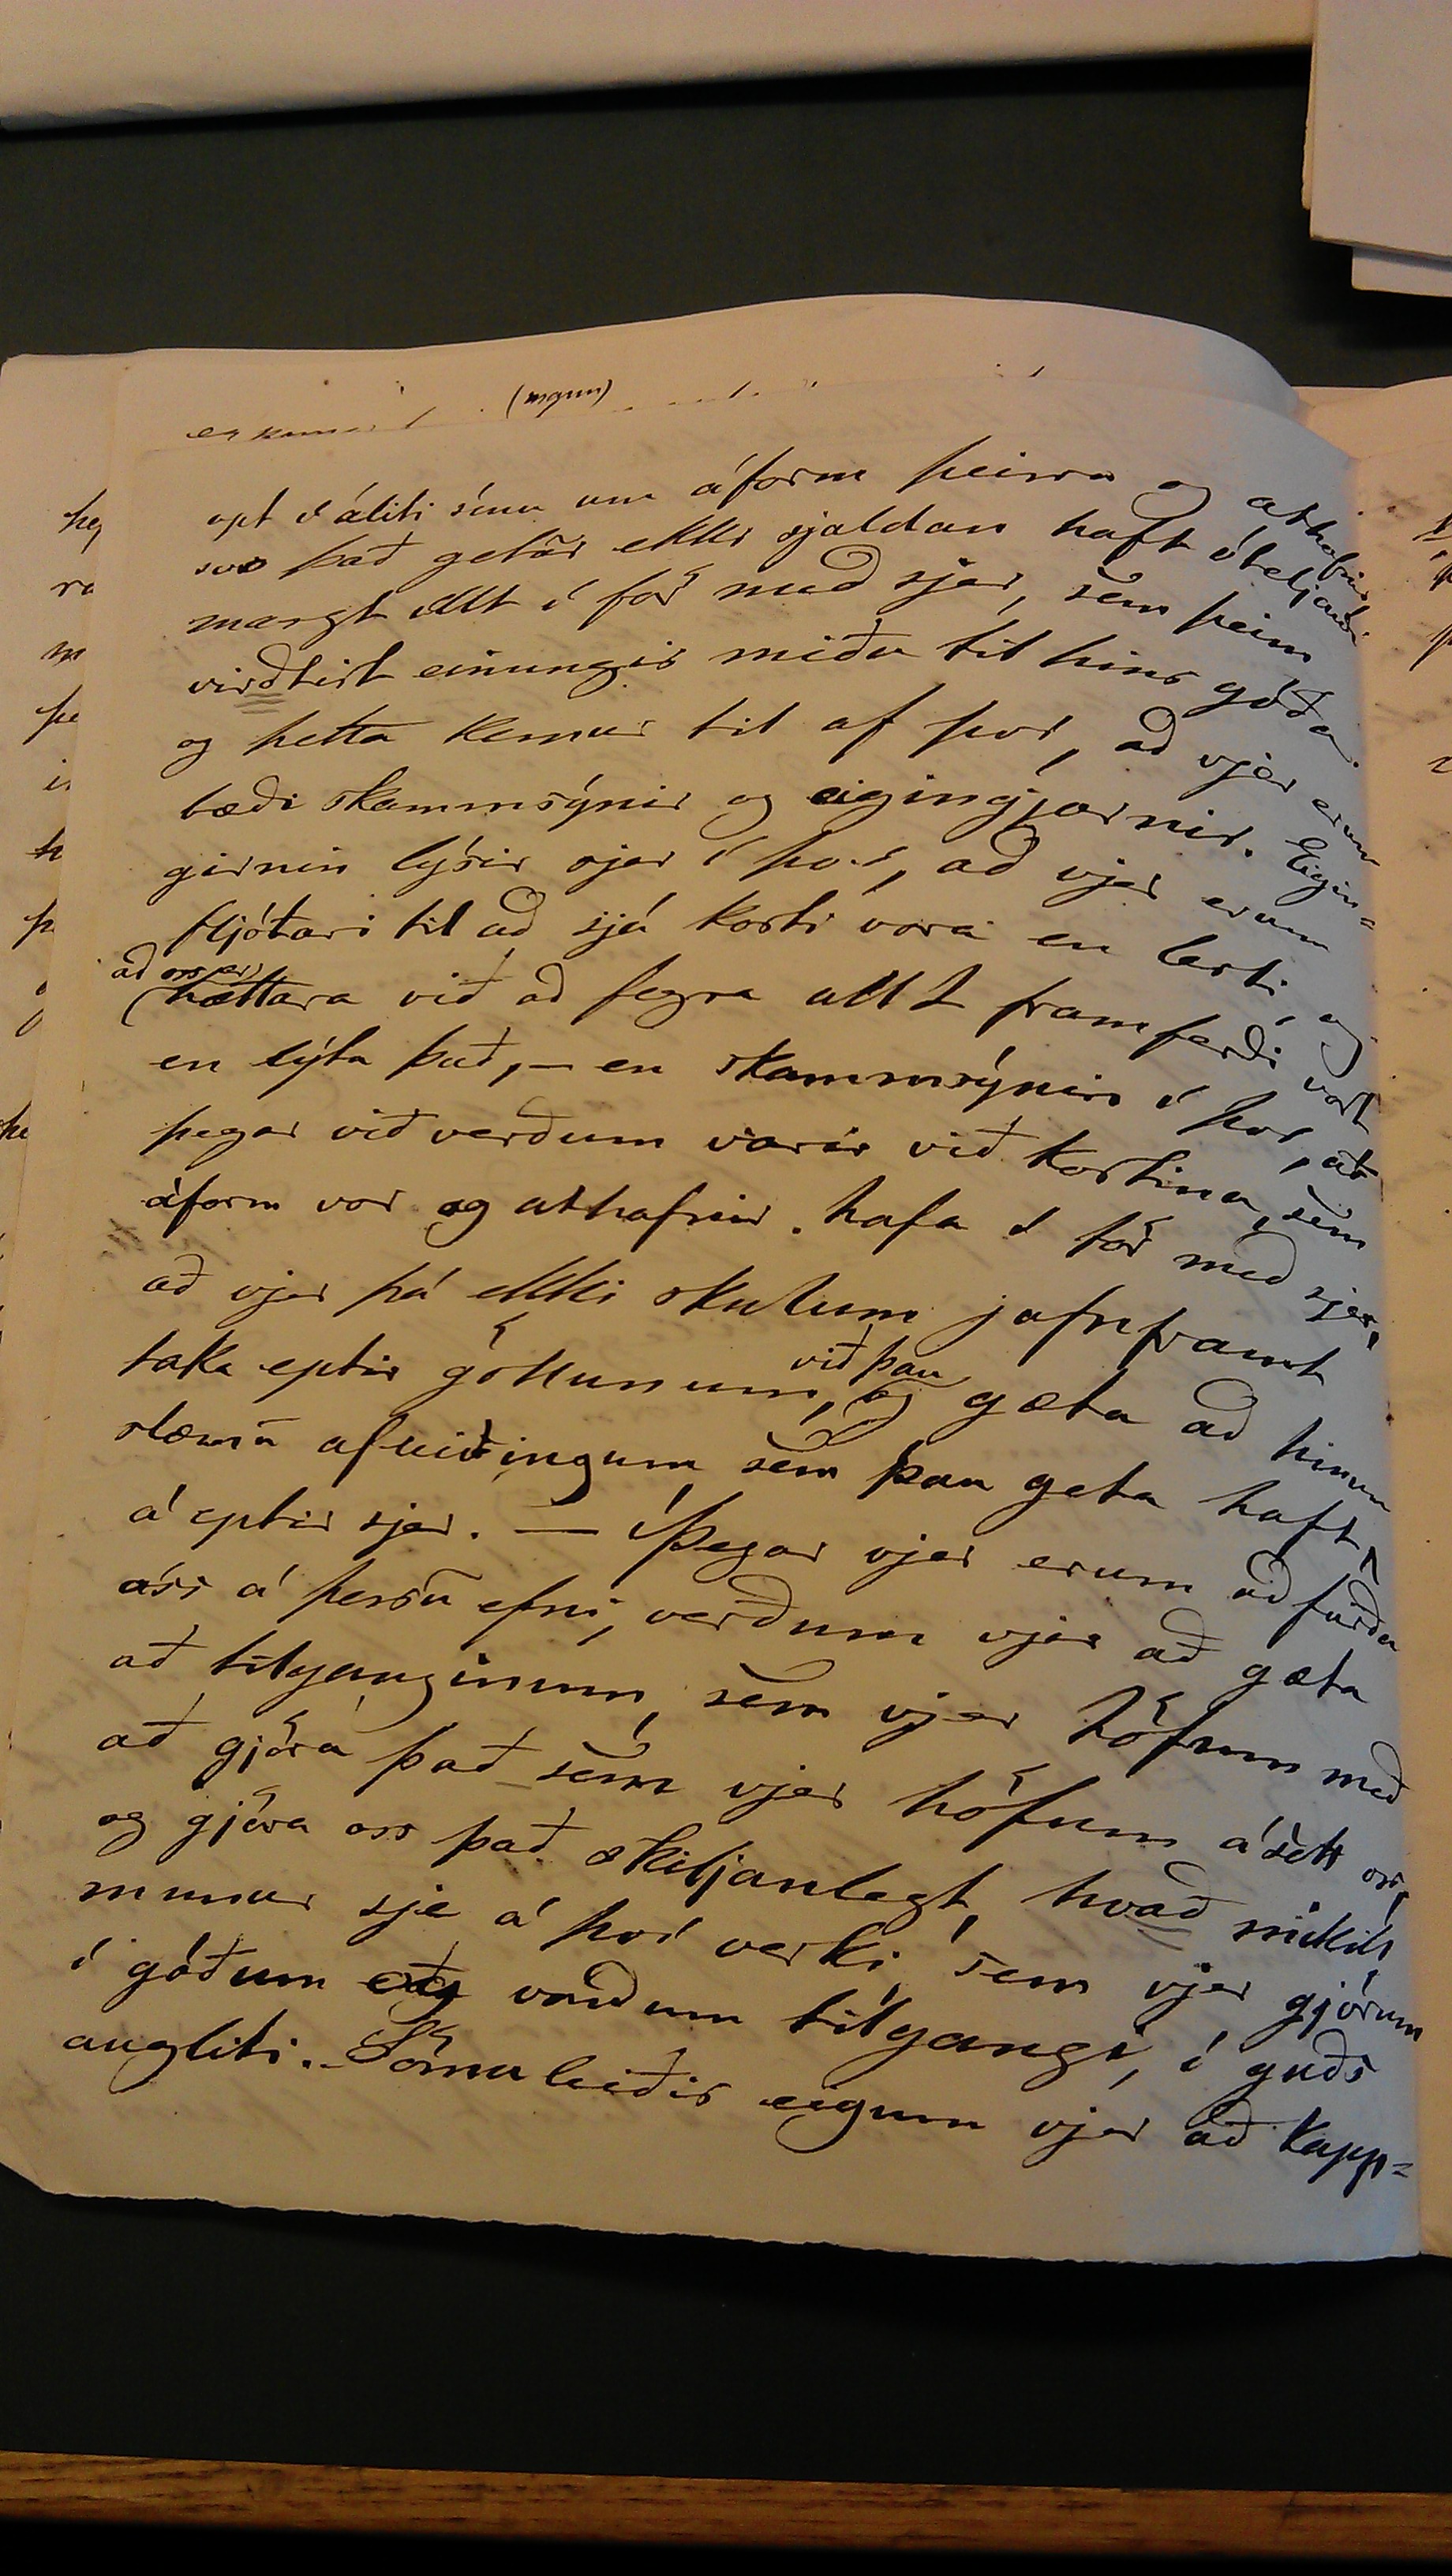 (mönn)
opt í áliti sínu um áform þeirra og athafnir
svo það getur ekki sjaldan haft óteljandi
margt illt í för með sjer, sem þeim
virðtist einungis miða til hins góða.
og þetta kemur til af því, að vjer erum
bæði skammsýnir og eigingjarnir. Eigin=
girnin lýsir sjer í því, að vjer erum
fljótari til að sjá kosti vora en lesti, og
að oss er
hættara við að fegra allt framferði vort
en lýta það, – en skammsýnin í því, að
þegar við verðum varir við kostina, sem
áform vor og athafnir hafa í för með sjer,
að vjer þá ekki skulum jafnframt
taka eptir göllunum, og gæta að hinum
við þau
slæmu afleiðingum, sem þau geta haft
á eptir sjer. — Þegar vjer erum að furða
oss á þessu efni, verðum vjer að gæta
að tilganginum, sem vjer höfum með
að gjöra það sem vjer höfum ásett oss,
og gjöra oss það skiljanlegt, hvað mikill
munur sje á því verki, sem vjer gjörum
í góðum og vondum tilgangi, í guðs
augliti. – Sömuleiðis eigum vjer að kapp=